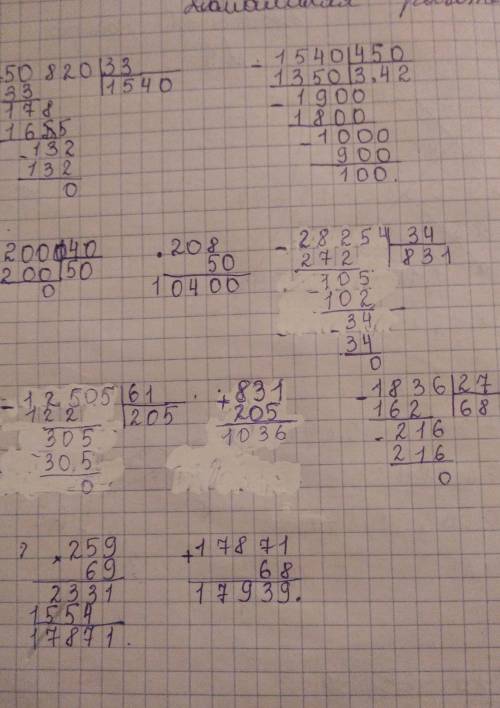 работа
50820 33
33 1540
178
1655
- 132
132
0
- 1540 450
1350 3.42
- 1900
1800
- 1000
900
100.
2000 40
200 50
0
. 208
50
10400
- 28254 34
272 831
105
102
- 34
34
0
- 12505 61
122 205
305
305
0
+ 831
205
1036
- 1836 27
162 68
- 216
216
0
? × 259
69
2331
1554
17871.
+ 17871
68
17939.